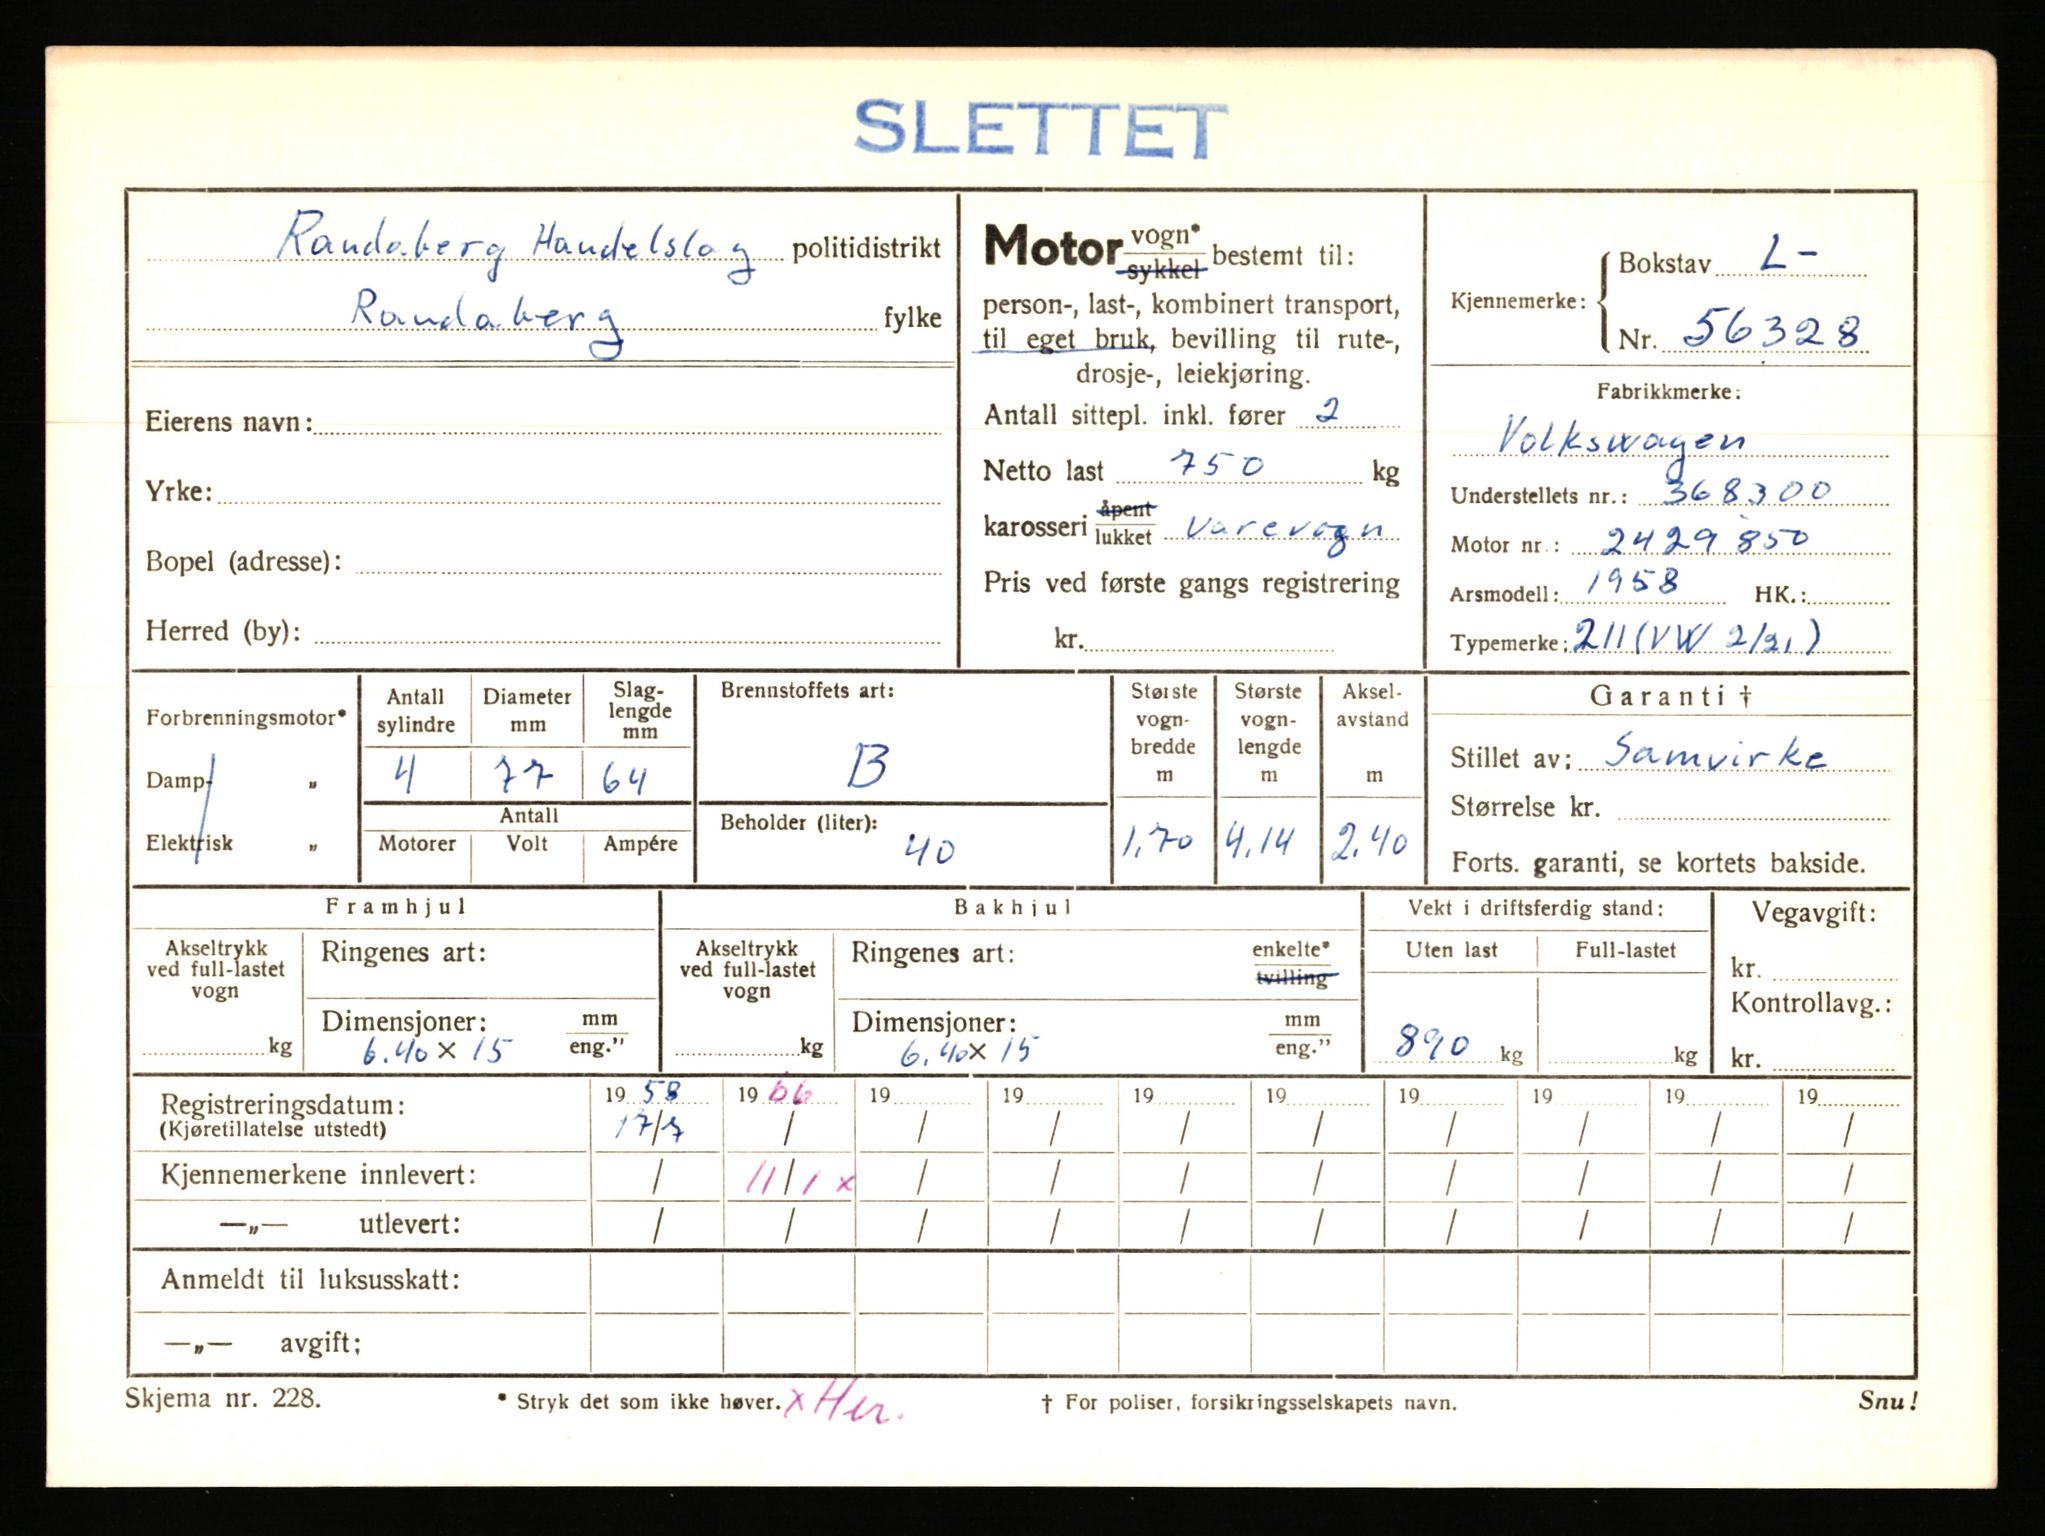 SLETTET
Randaberg Handelslag politidistrikt
Randaberg fylke
Eierens navn:
Yrke:
Bopel (adresse):
Herred (by):
Motor vogn* sykkel bestemt til:
person-, last-, kombinert transport,
til eget bruk, bevilling til rute-,
drosje-, leiekjøring.
Antall sittepl. inkl. fører 2
Netto last 750 kg
karosseri åpent lukket varevogn
Pris ved første gangs registrering
kr.
Kjennemerke: Bokstav L-
Nr. 56328
Fabrikkmerke:
Volkswagen
Understellets nr.: 368300
Motor nr.: 2429850
Arsmodell: 1958 HK.:
Typemerke: 211 (VW 2/21)
Forbrenningsmotor*
Damp- „
Elektrisk „
Antall sylindre 4
Diameter mm 77
Slag-lengde mm 64
Antall
Motorer Volt Ampére
Brennstoffets art:
B
Beholder (liter):
40
Største vogn-bredde m 1.70
Største vogn-lengde m 4.14
Aksel-avstand m 2.40
Garanti †
Stillet av: Samvirke
Størrelse kr.
Forts. garanti, se kortets bakside.
Framhjul
Akseltrykk ved full-lastet vogn
kg
Ringenes art:
Dimensjoner: mm eng."
6.40 x 15
Bakhjul
Akseltrykk ved full-lastet vogn
kg
Ringenes art: enkelte* tvilling
Dimensjoner: mm eng."
6.40 x 15
Vekt i driftsferdig stand:
Uten last Full-lastet
890 kg kg
Vegavgift:
kr.
Kontrollavg.:
kr.
Registreringsdatum: 19 58 19 66 19 19 19 19 19 19 19 19
(Kjøretillatelse utstedt) 17/7 / / / / / / / / /
Kjennemerkene innlevert: / 11/1 x / / / / / / / /
—„— utlevert: / / / / / / / / / /
Anmeldt til luksusskatt:
—„— avgift:
Skjema nr. 228. * Stryk det som ikke høver. x Her. † For poliser, forsikringsselskapets navn. Snu!